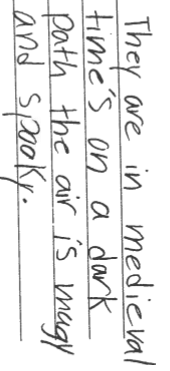 They are in medieval
time's on a dark
path the air is mugy
and spooky.